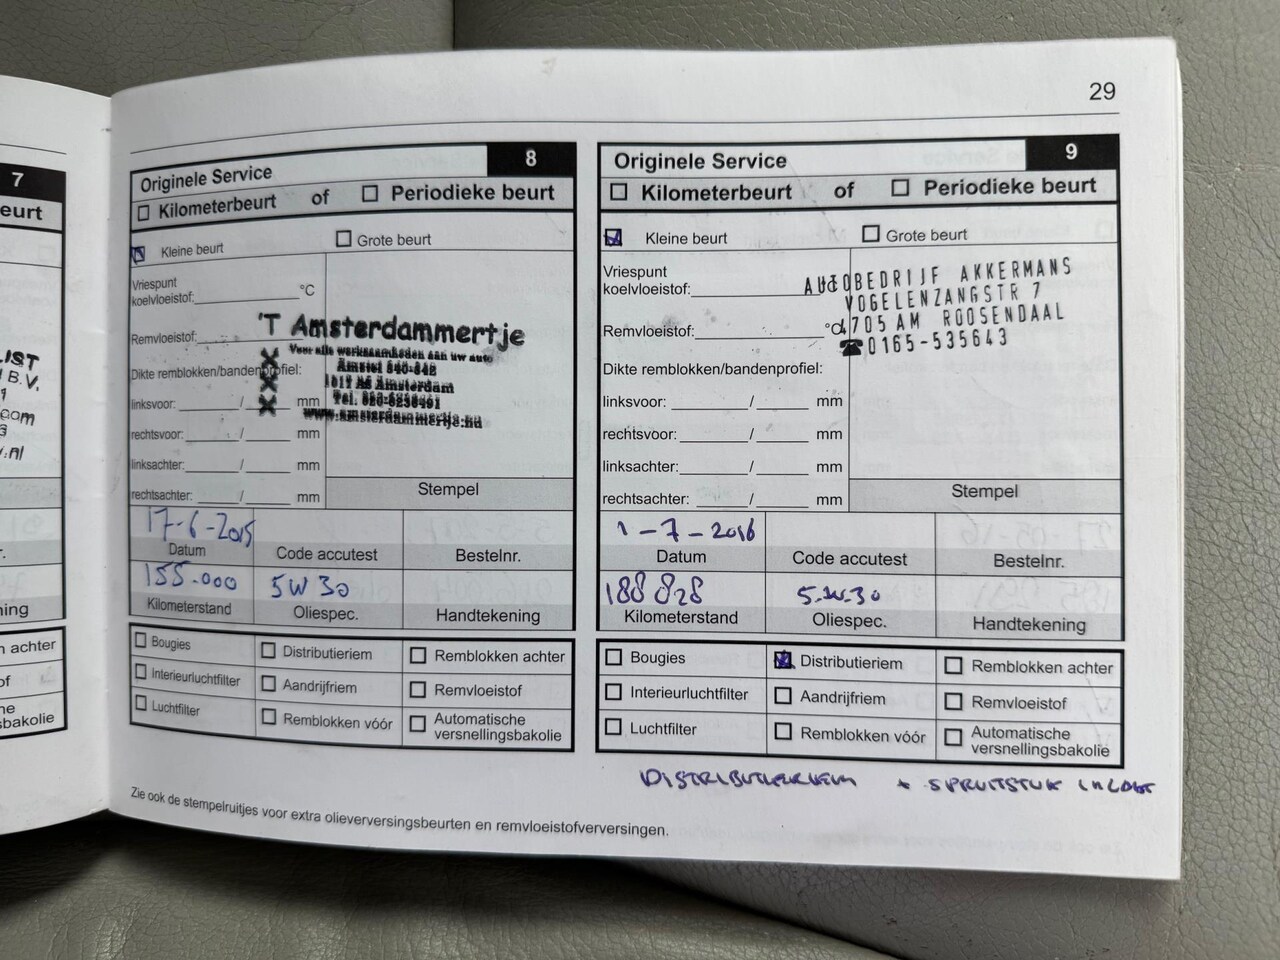 29
7
eurt
IST
B.V.
.nl
ning
n achter
of
sbakolie
Originele Service 8
Kilometerbeurt of Periodieke beurt
Kleine beurt Grote beurt
Vriespunt
koelvloeistof: °C
Remvloeistof:
'T Amsterdammertje
Voor alle werkzaamheden aan uw auto
Amstel 840-842
1017 AS Amsterdam
www.amsterdammertje.nu
Dikte remblokken/bandenprofiel:
linksvoor: / mm
rechtsvoor: / mm
linksachter: / mm
rechtsachter: / mm
Stempel
17-6-2015
Datum Code accutest Bestelnr.
155.000 5W30
Kilometerstand Oliespec. Handtekening
Bougies Distributieriem Remblokken achter
Interieurluchtfilter Aandrijfriem Remvloeistof
Luchtfilter Remblokken vóór Automatische
versnellingsbakolie
Zie ook de stempelruitjes voor extra olieverversingsbeurten en remvloeistofverversingen.
Originele Service 9
Kilometerbeurt of Periodieke beurt
Kleine beurt Grote beurt
Vriespunt
koelvloeistof:
Remvloeistof:
AUTOBEDRIJF AKKERMANS
VOGELENZANGSTR 7
4705 AM ROOSENDAAL
☎0165-535643
Dikte remblokken/bandenprofiel:
linksvoor: / mm
rechtsvoor: / mm
linksachter: / mm
rechtsachter: / mm
Stempel
1-7-2016
Datum Code accutest Bestelnr.
188828 5.W.30
Kilometerstand Oliespec. Handtekening
Bougies Distributieriem Remblokken achter
Interieurluchtfilter Aandrijfriem Remvloeistof
Luchtfilter Remblokken vóór Automatische
versnellingsbakolie
DISTRIBUTIERIEM + SPRUITSTUK INLAAT